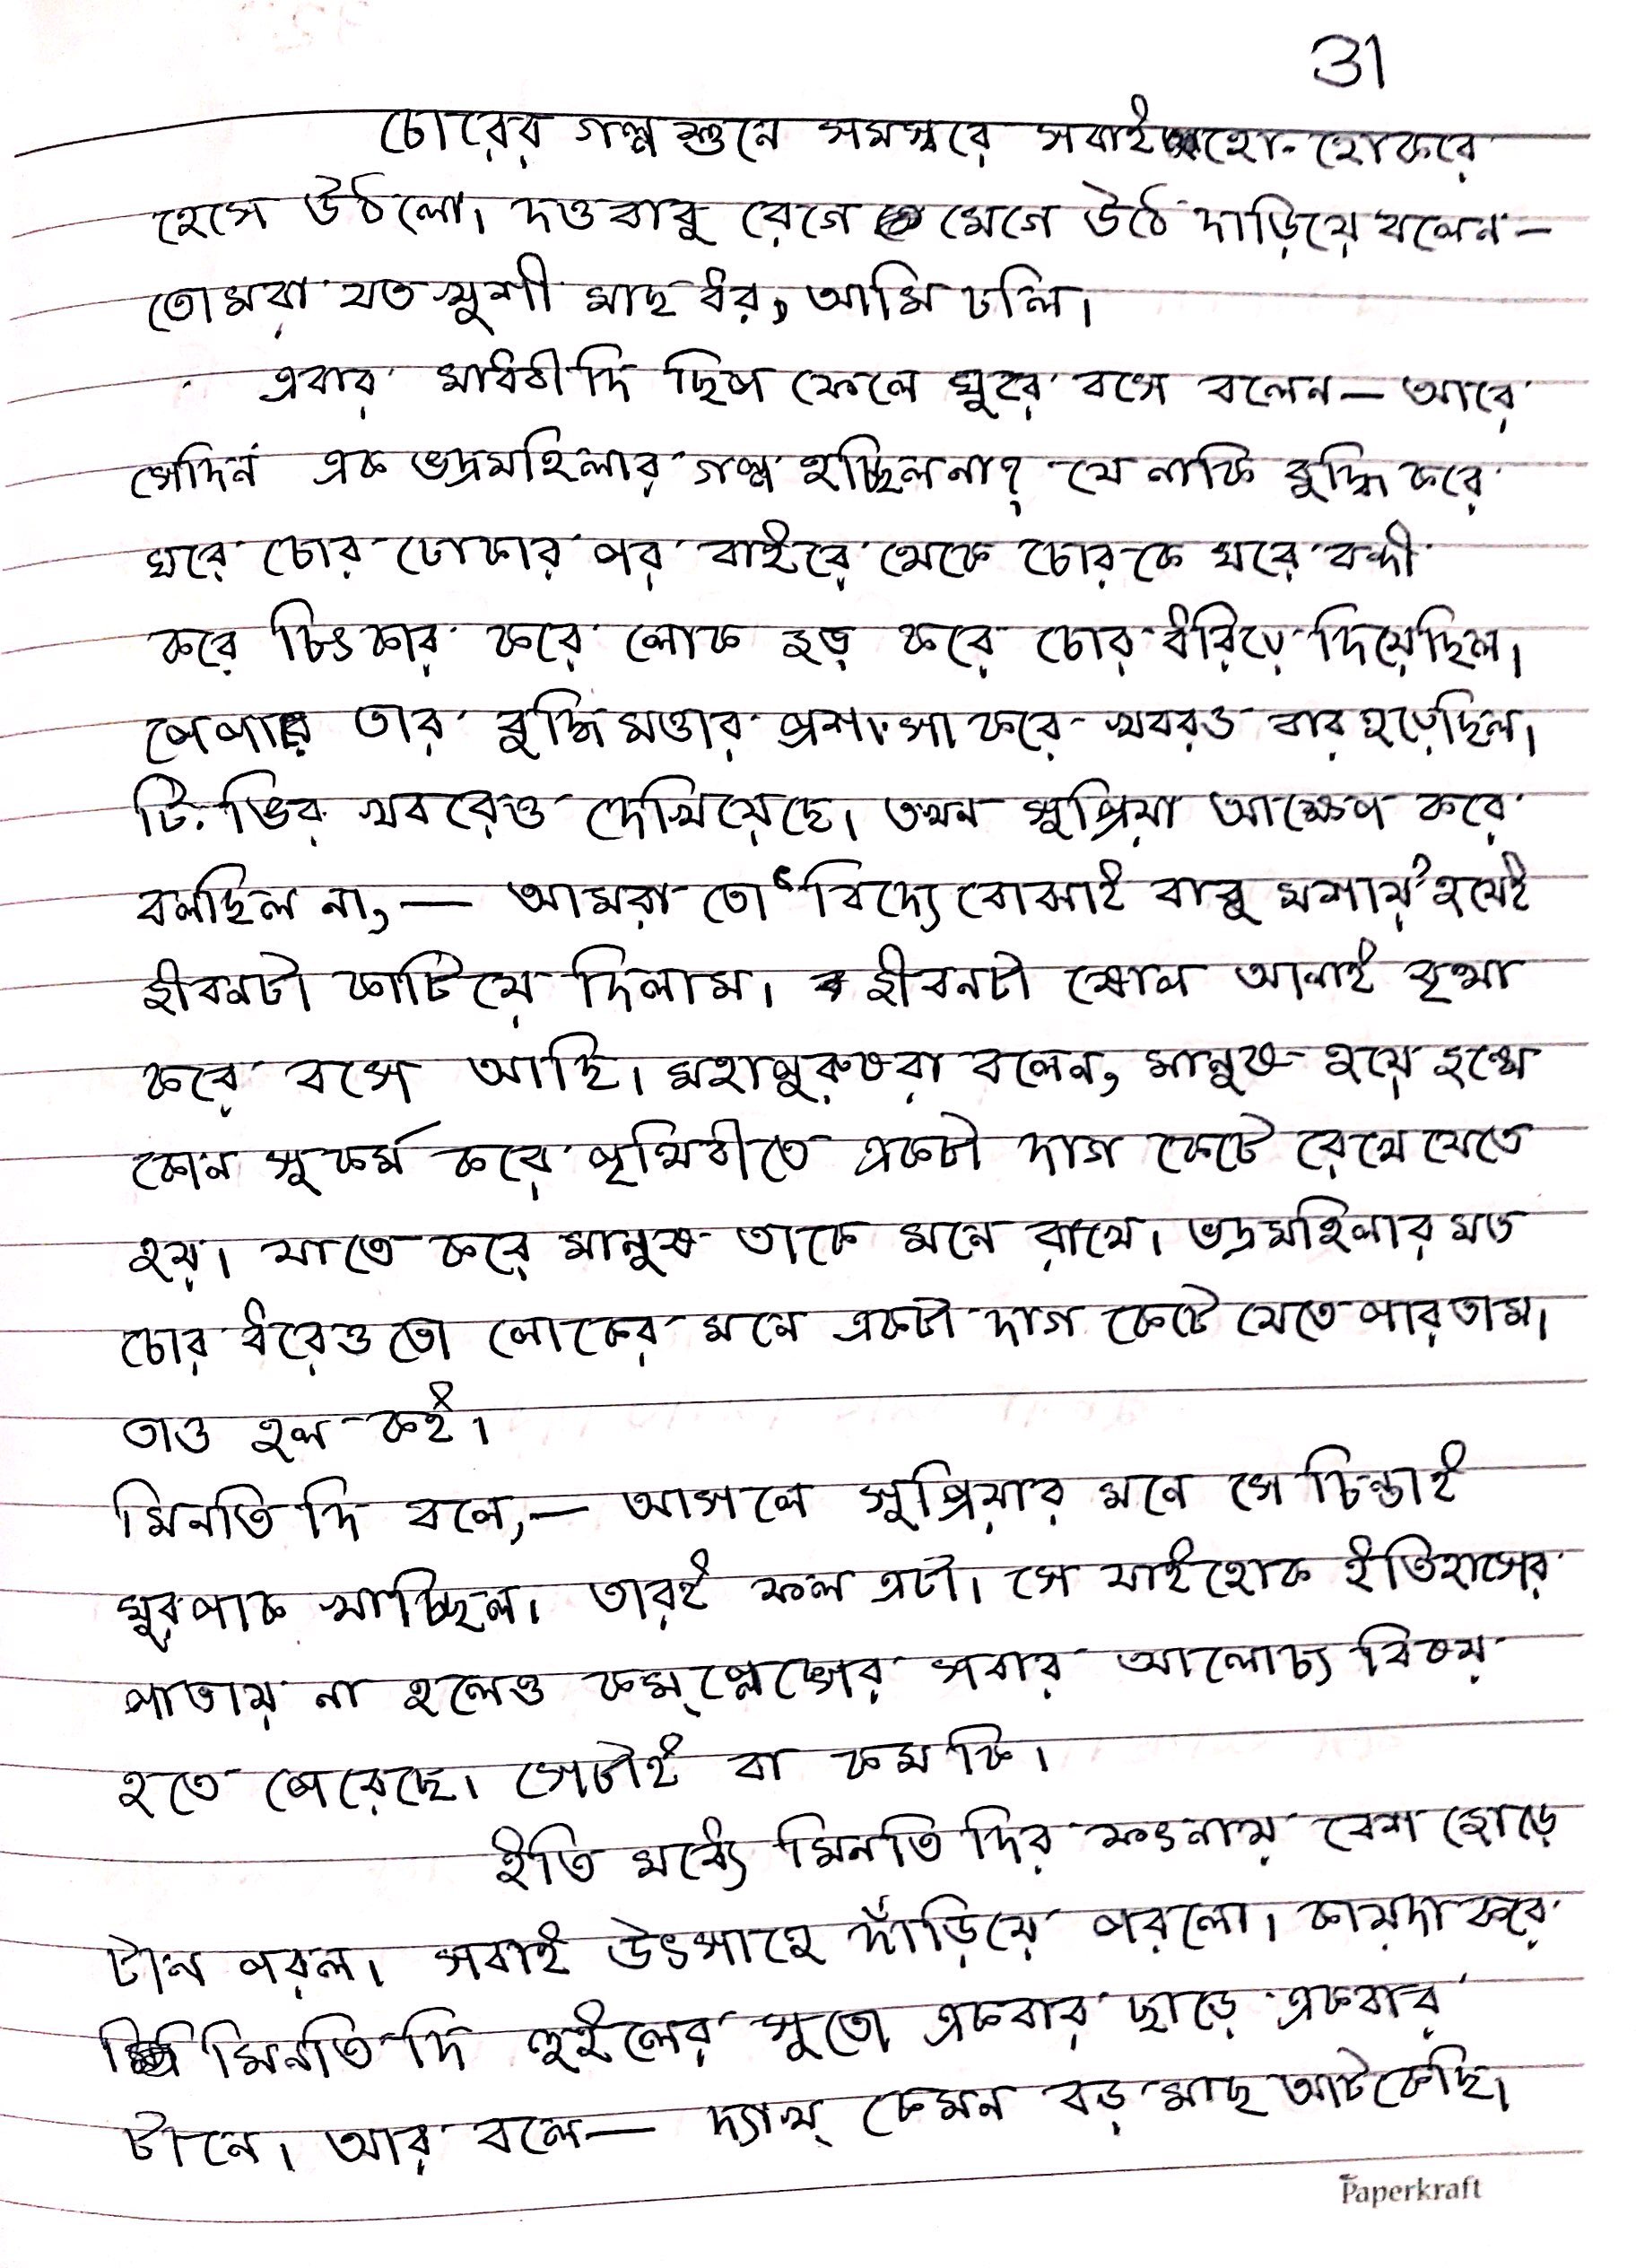 31
চোরের গল্প শুনে সমস্বরে সবাই হো-হো করে
হেসে উঠলো। দত্তবাবু রেগে মেগে উঠে দাড়িয়ে বলেন—
তোমরা যত খুশী মাছ ধর, আমি চলি।
এবার মাধবীদি ছিপ ফেলে ঘুরে বসে বলেন— আরে
সেদিন এক ভদ্রমহিলার গল্প হচ্ছিলনা? যে নাকি বুদ্ধি করে
ঘরে চোর ঢোকার পর বাইরে থেকে চোরকে ঘরে বন্দী
করে চিৎকার করে লোক জড় করে চোর ধরিয়ে দিয়েছিল।
পেপারে তার বুদ্ধিমত্তার প্রশংসা করে খবরও বার হয়েছিল।
টি. ভির খবরেও দেখিয়েছে। তখন সুপ্রিয়া আক্ষেপ করে
বলছিল না,— আমরা তো ‘বিদ্যে বোঝাই বাবু মশায়’ হয়েই
জীবনটা কাটিয়ে দিলাম। জীবনটা ষোল আনাই বৃথা
করে বসে আছি। মহাপুরুষরা বলেন, মানুষ হয়ে জন্মে
কোন সুকর্ম করে পৃথিবীতে একটা দাগ কেটে রেখে যেতে
হয়। যাতে করে মানুষ তাকে মনে রাখে। ভদ্রমহিলার মত
চোর ধরেও তো লোকের মনে একটা দাগ কেটে যেতে পারতাম।
তাও হল কই।
মিনতি দি বলে,— আসলে সুপ্রিয়ার মনে সে চিন্তাই
ঘুরপাক খাচ্ছিল। তারই ফল এটা। সে যাইহোক ইতিহাসের
পাতায় না হলেও কমপ্লেক্সের সবার আলোচ্য বিষয়
হতে পেরেছে। সেটাই বা কম কি।
ইতি মধ্যে মিনতি দির ফৎনায় বেশ জোড়ে
টান পরল। সবাই উৎসাহে দাঁড়িয়ে পরলো। কায়দা করে
মিনতি দি হুইলের সুতো একবার ছাড়ে একবার
টানে। আর বলে— দ্যাখ্ কেমন বড় মাছ আটকেছি।
Paperkraft